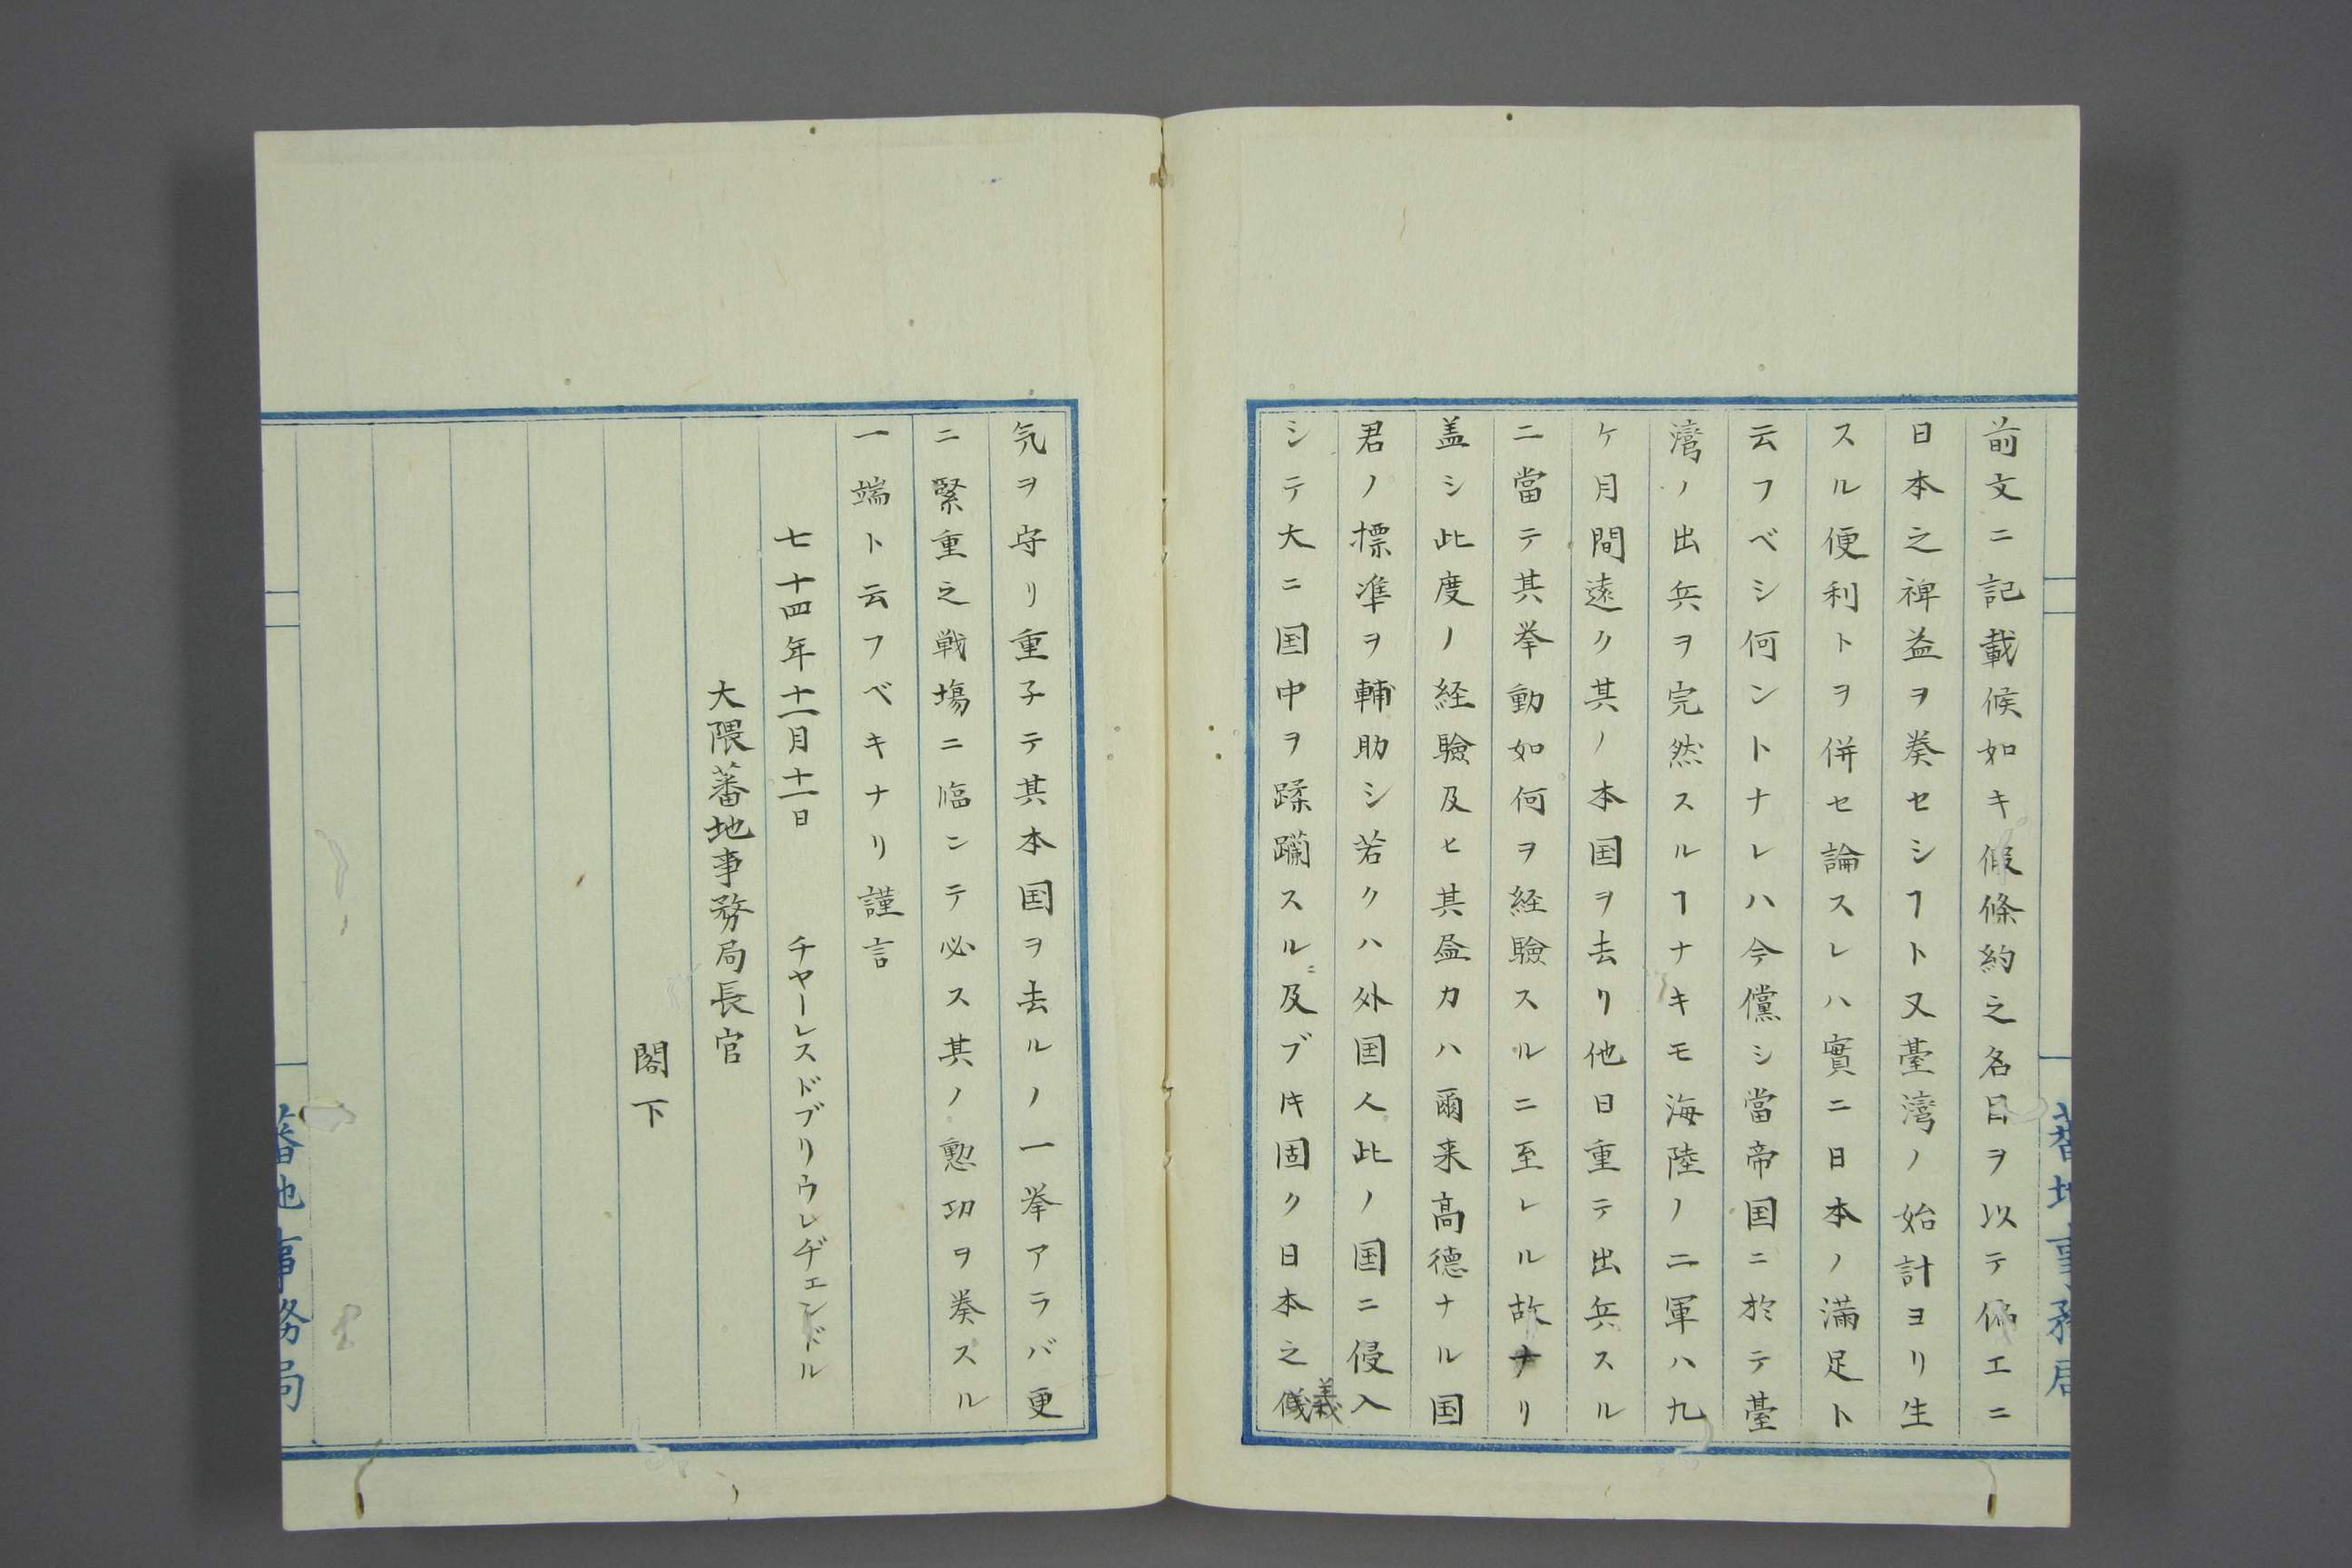 前文ニ記載候如キ假條約之名目ヲ以テ偏エニ
日本之裨益ヲ発セシヿト又臺灣ノ始計ヨリ生
スル便利トヲ併セ論スレハ實ニ日本ノ満足ト
云フベシ何ントナレハ今儻シ當帝国ニ於テ臺
灣ノ出兵ヲ完然スルヿナキモ海陸ノ二軍ハ九
ケ月間遠ク其ノ本国ヲ去リ他日重テ出兵スル
ニ當テ其挙動如何ヲ経驗スルニ至レル故ナリ
盖シ此度ノ経驗及ヒ其益カハ爾来高德ナル国
君ノ標準ヲ輔助シ若クハ外国人此ノ国ニ侵入
シテ大ニ国中ヲ蹂躙スルニ及ブ𪜈固ク日本之儀義
気ヲ守リ重子テ其本国ヲ去ルノ一挙アラバ更
ニ緊重之戦塲ニ臨ンテ必ス其ノ勲功ヲ発スル
一端ト云フベキナリ謹言
七十四年十一月十一日 チヤーレスドブリウレヂェンドル
大隈蕃地事務局長官
閣下
蕃地事務局
蕃地事務局